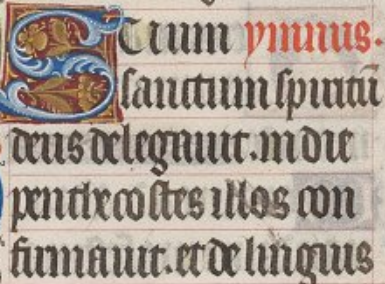 Spiritum ymnus.
sanctum spiritū
deus delegauit. in die
penthecostes illos con
firmauit. et de linguis